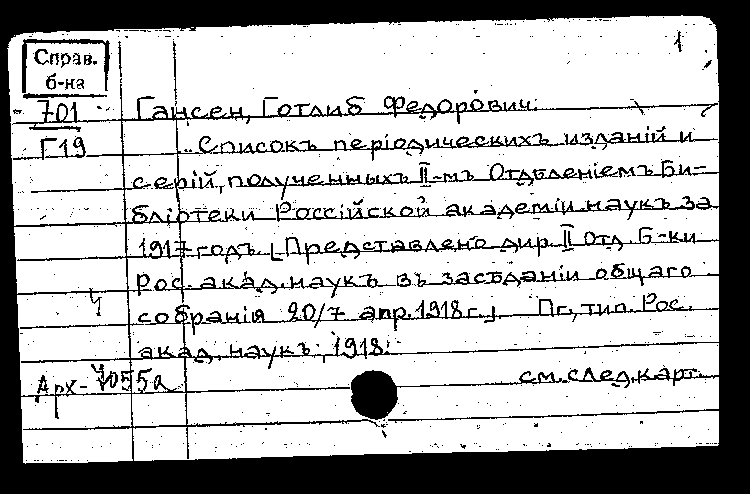 1
Справ.
б-на
701
Г19
Гансен, Готлиб Федорович.
..Списокъ періодическихъ изданій и
серій, полученныхъ II-мъ Отдѣленіемъ Би-
бліотеки Россійской академіи наукъ за
1917 годъ. [Представлено дир. II Отд. Б-ки
Рос. акад. наукъ въ засѣданіи общаго
собранія 20/7 апр. 1918 г.] Пг., тип. Рос.
акад. наукъ, 1918.
Арх-7055а
см. след. карт.